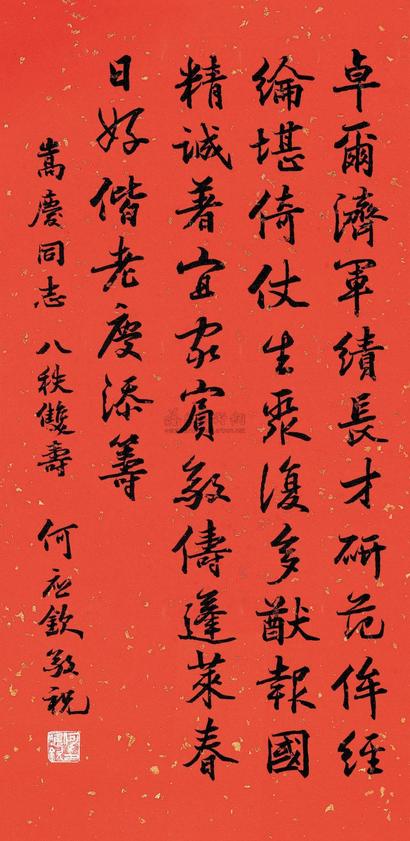 卓爾濟軍績長才研范侔經
綸堪倚仗生聚復多猷報國
精誠著宜家賓敬儔蓬萊春
日好偕老慶添籌
嵩慶同志 八秩雙壽 何應欽敬祝